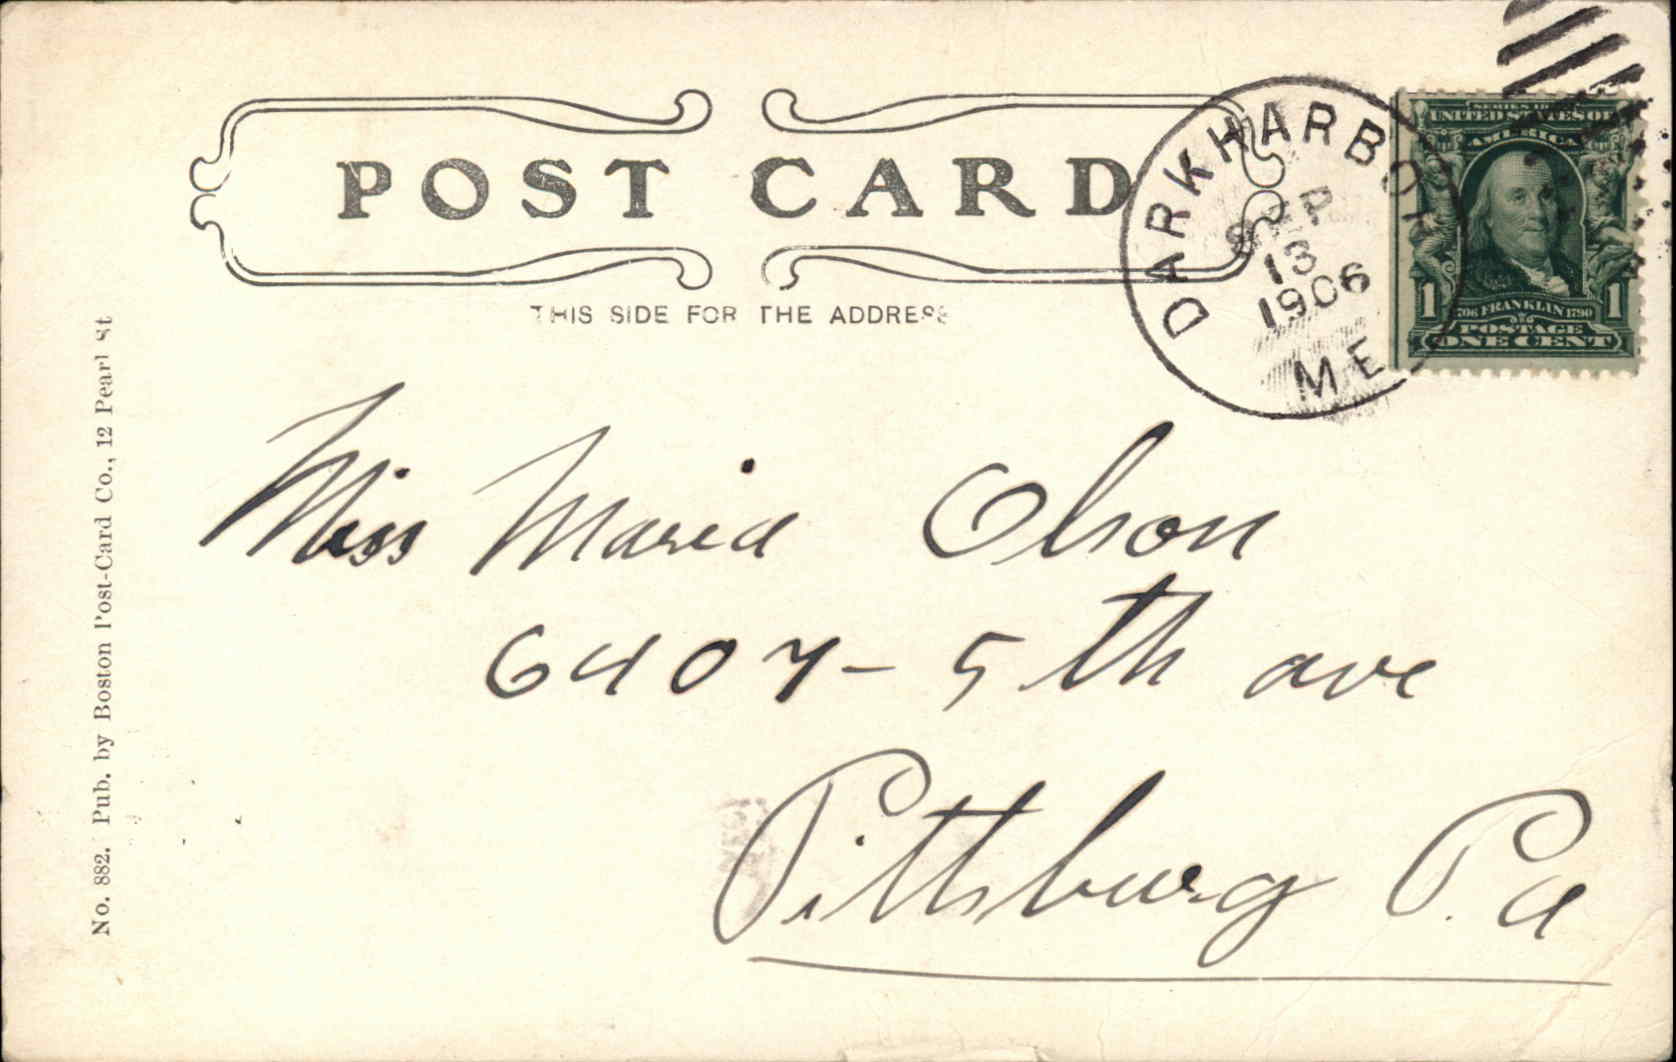 POST CARD
THIS SIDE FOR THE ADDRESS
DARK HARBOR
SEP
13
1906
ME
SERIES 1902
UNITED STATES OF
AMERICA
1706 FRANKLIN 1790
1 1
POSTAGE
ONE CENT
Miss Maria Olson
6407 - 5th ave
Pittsburg Pa
No. 882. Pub. by Boston Post-Card Co., 12 Pearl St